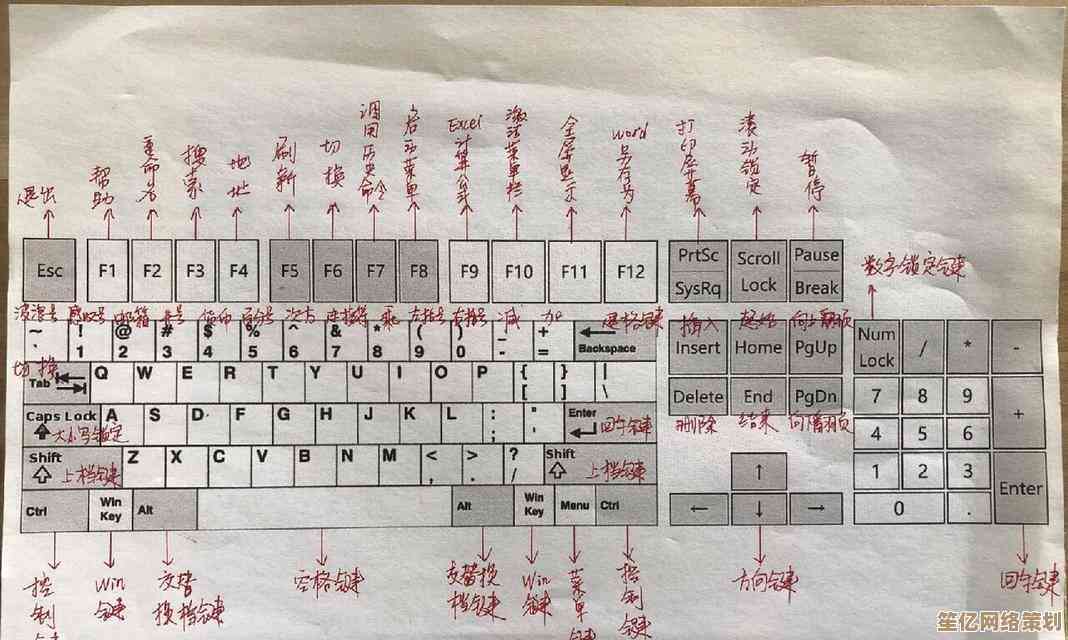 退出 帮助 重命名 搜索 地址 刷新 切换 调用历史命令 启动菜单 Excel计算公式 激活菜单栏 全屏显示 word另存为 打印屏幕 滚动锁定 暂停
Esc F1 F2 F3 F4 F5 F6 F7 F8 F9 F10 F11 F12 PrtSc SysRq Scroll Lock Pause Break
数字锁定键
波浪号 感叹号 邮箱 井号 货币 百分号 次方 连接符 乘 左括号 右括号 减 加 退格键 插入 起始 向上翻页
~ ! @ # $ % ^ & * ( ) _ + Backspace Insert Home PgUp Num Lock / * -
` 1 2 3 4 5 6 7 8 9 0 - =
切换
Tab Q W E R T Y U I O P { [ } ] | Delete End PgDn 7 8 9 +
删除 结束 向下翻页
Caps Lock A S D F G H J K L : ; " ' Enter 4 5 6
大小写锁定 回车键
Shift Z X C V B N M < , > . ? / Shift ↑ 1 2 3 Enter
上档键 上档键
Ctrl Win Key Alt Alt Win Key Menu Ctrl ← ↓ → 0 .
控制键 Win键 交替换档键 空格键 交替换档键 Win键 菜单键 控制键 方向键 回车键
笙亿网络策划